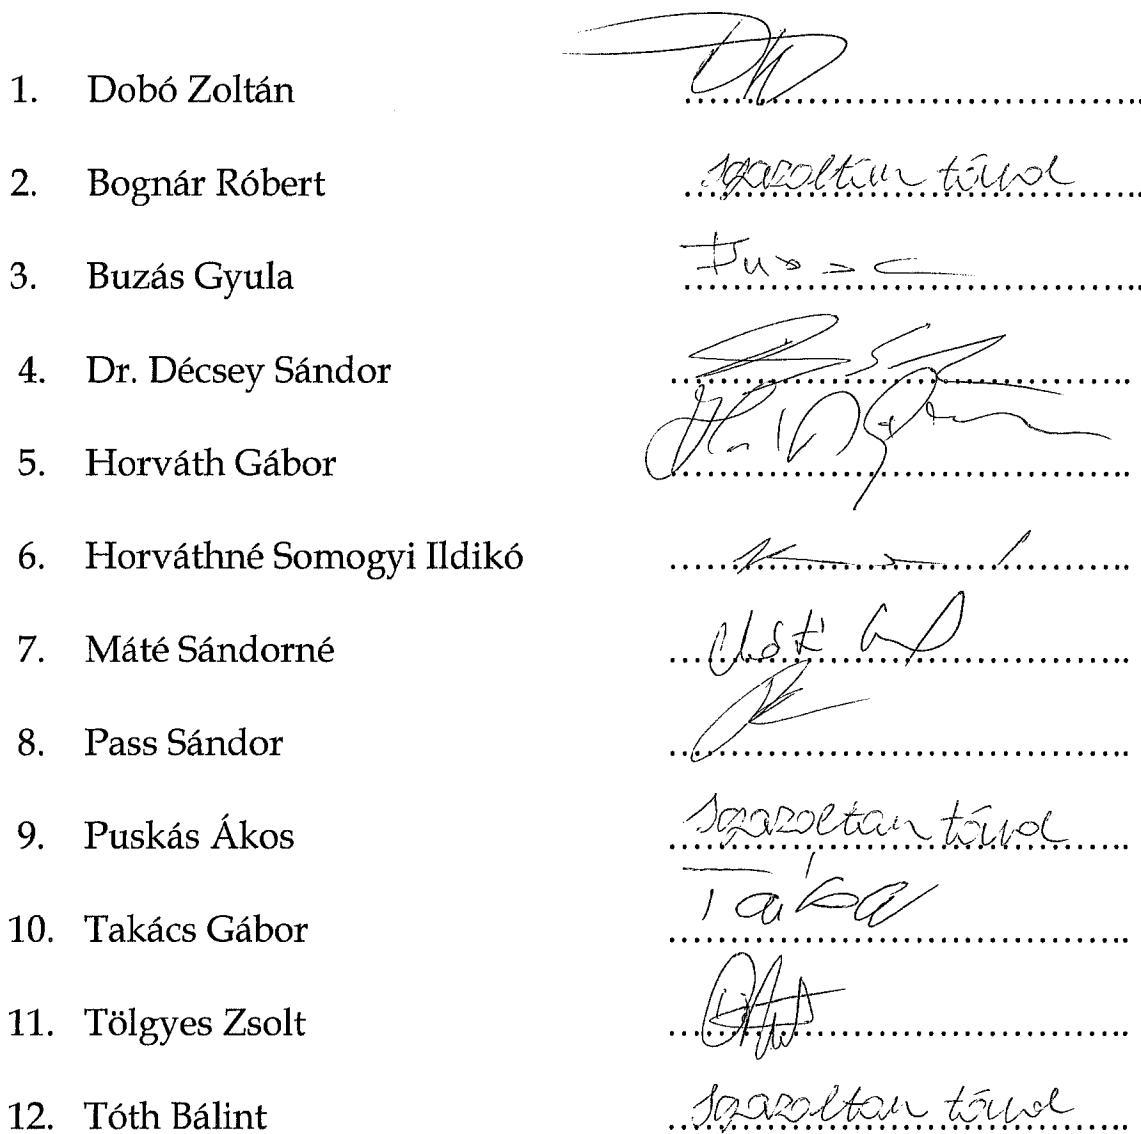 1. Dobó Zoltán
2. Bognár Róbert igazoltan távol
3. Buzás Gyula
4. Dr. Décsey Sándor
5. Horváth Gábor
6. Horváthné Somogyi Ildikó
7. Máté Sándorné
8. Pass Sándor
9. Puskás Ákos igazoltan távol
10. Takács Gábor
11. Tölgyes Zsolt
12. Tóth Bálint igazoltan távol